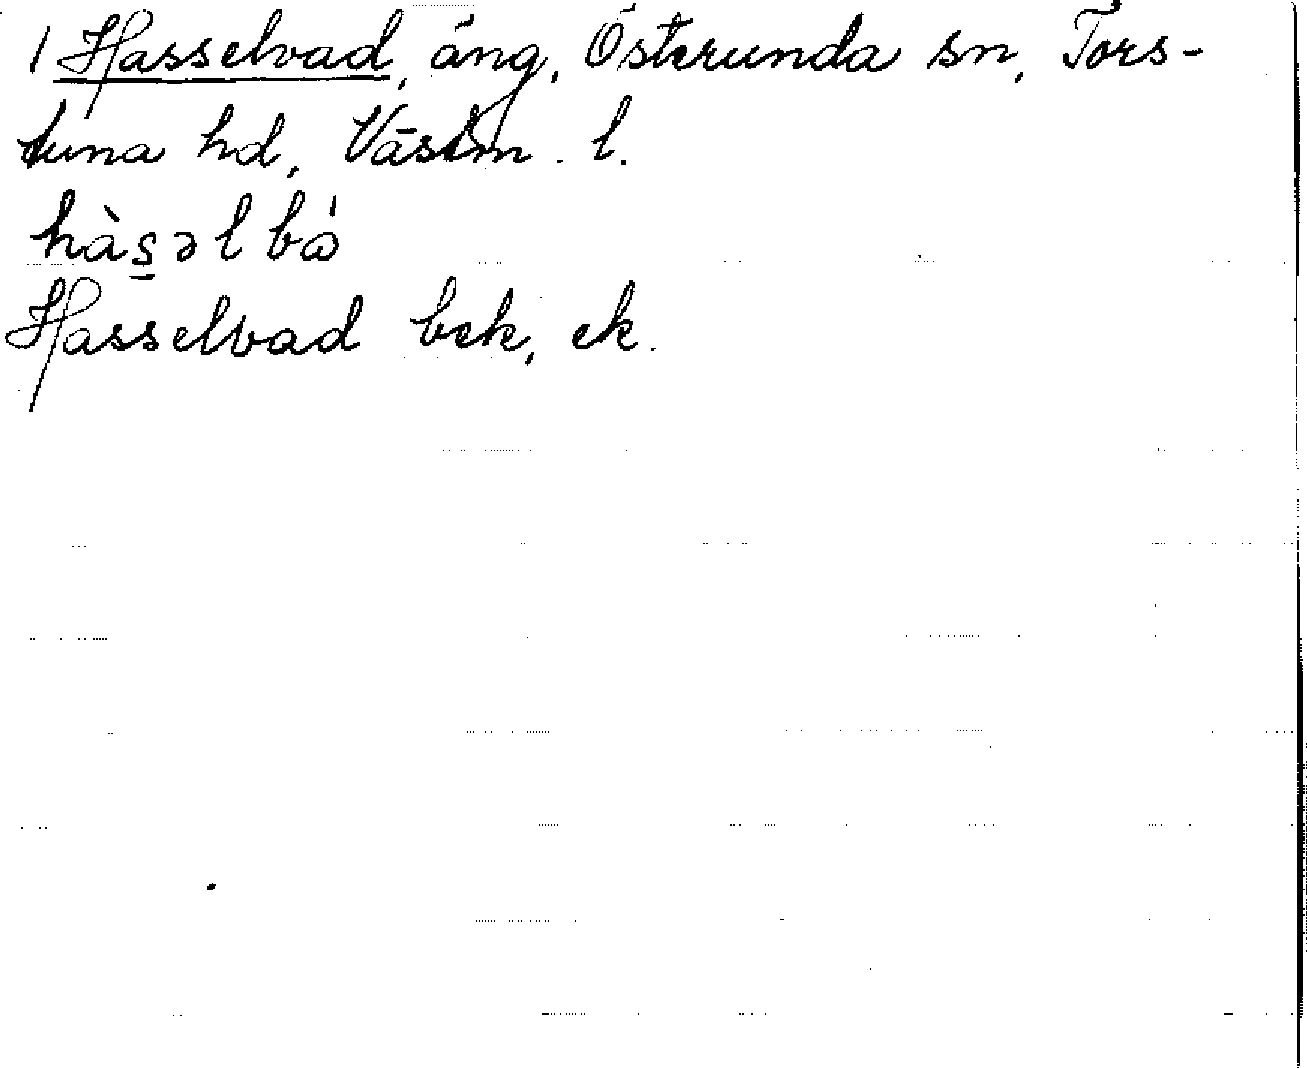 1 Hasselvad, äng, Österunda sn, Tors-
tuna hd, Västm. l.
hàs̲əl bó
Hasselvad bek, ek.